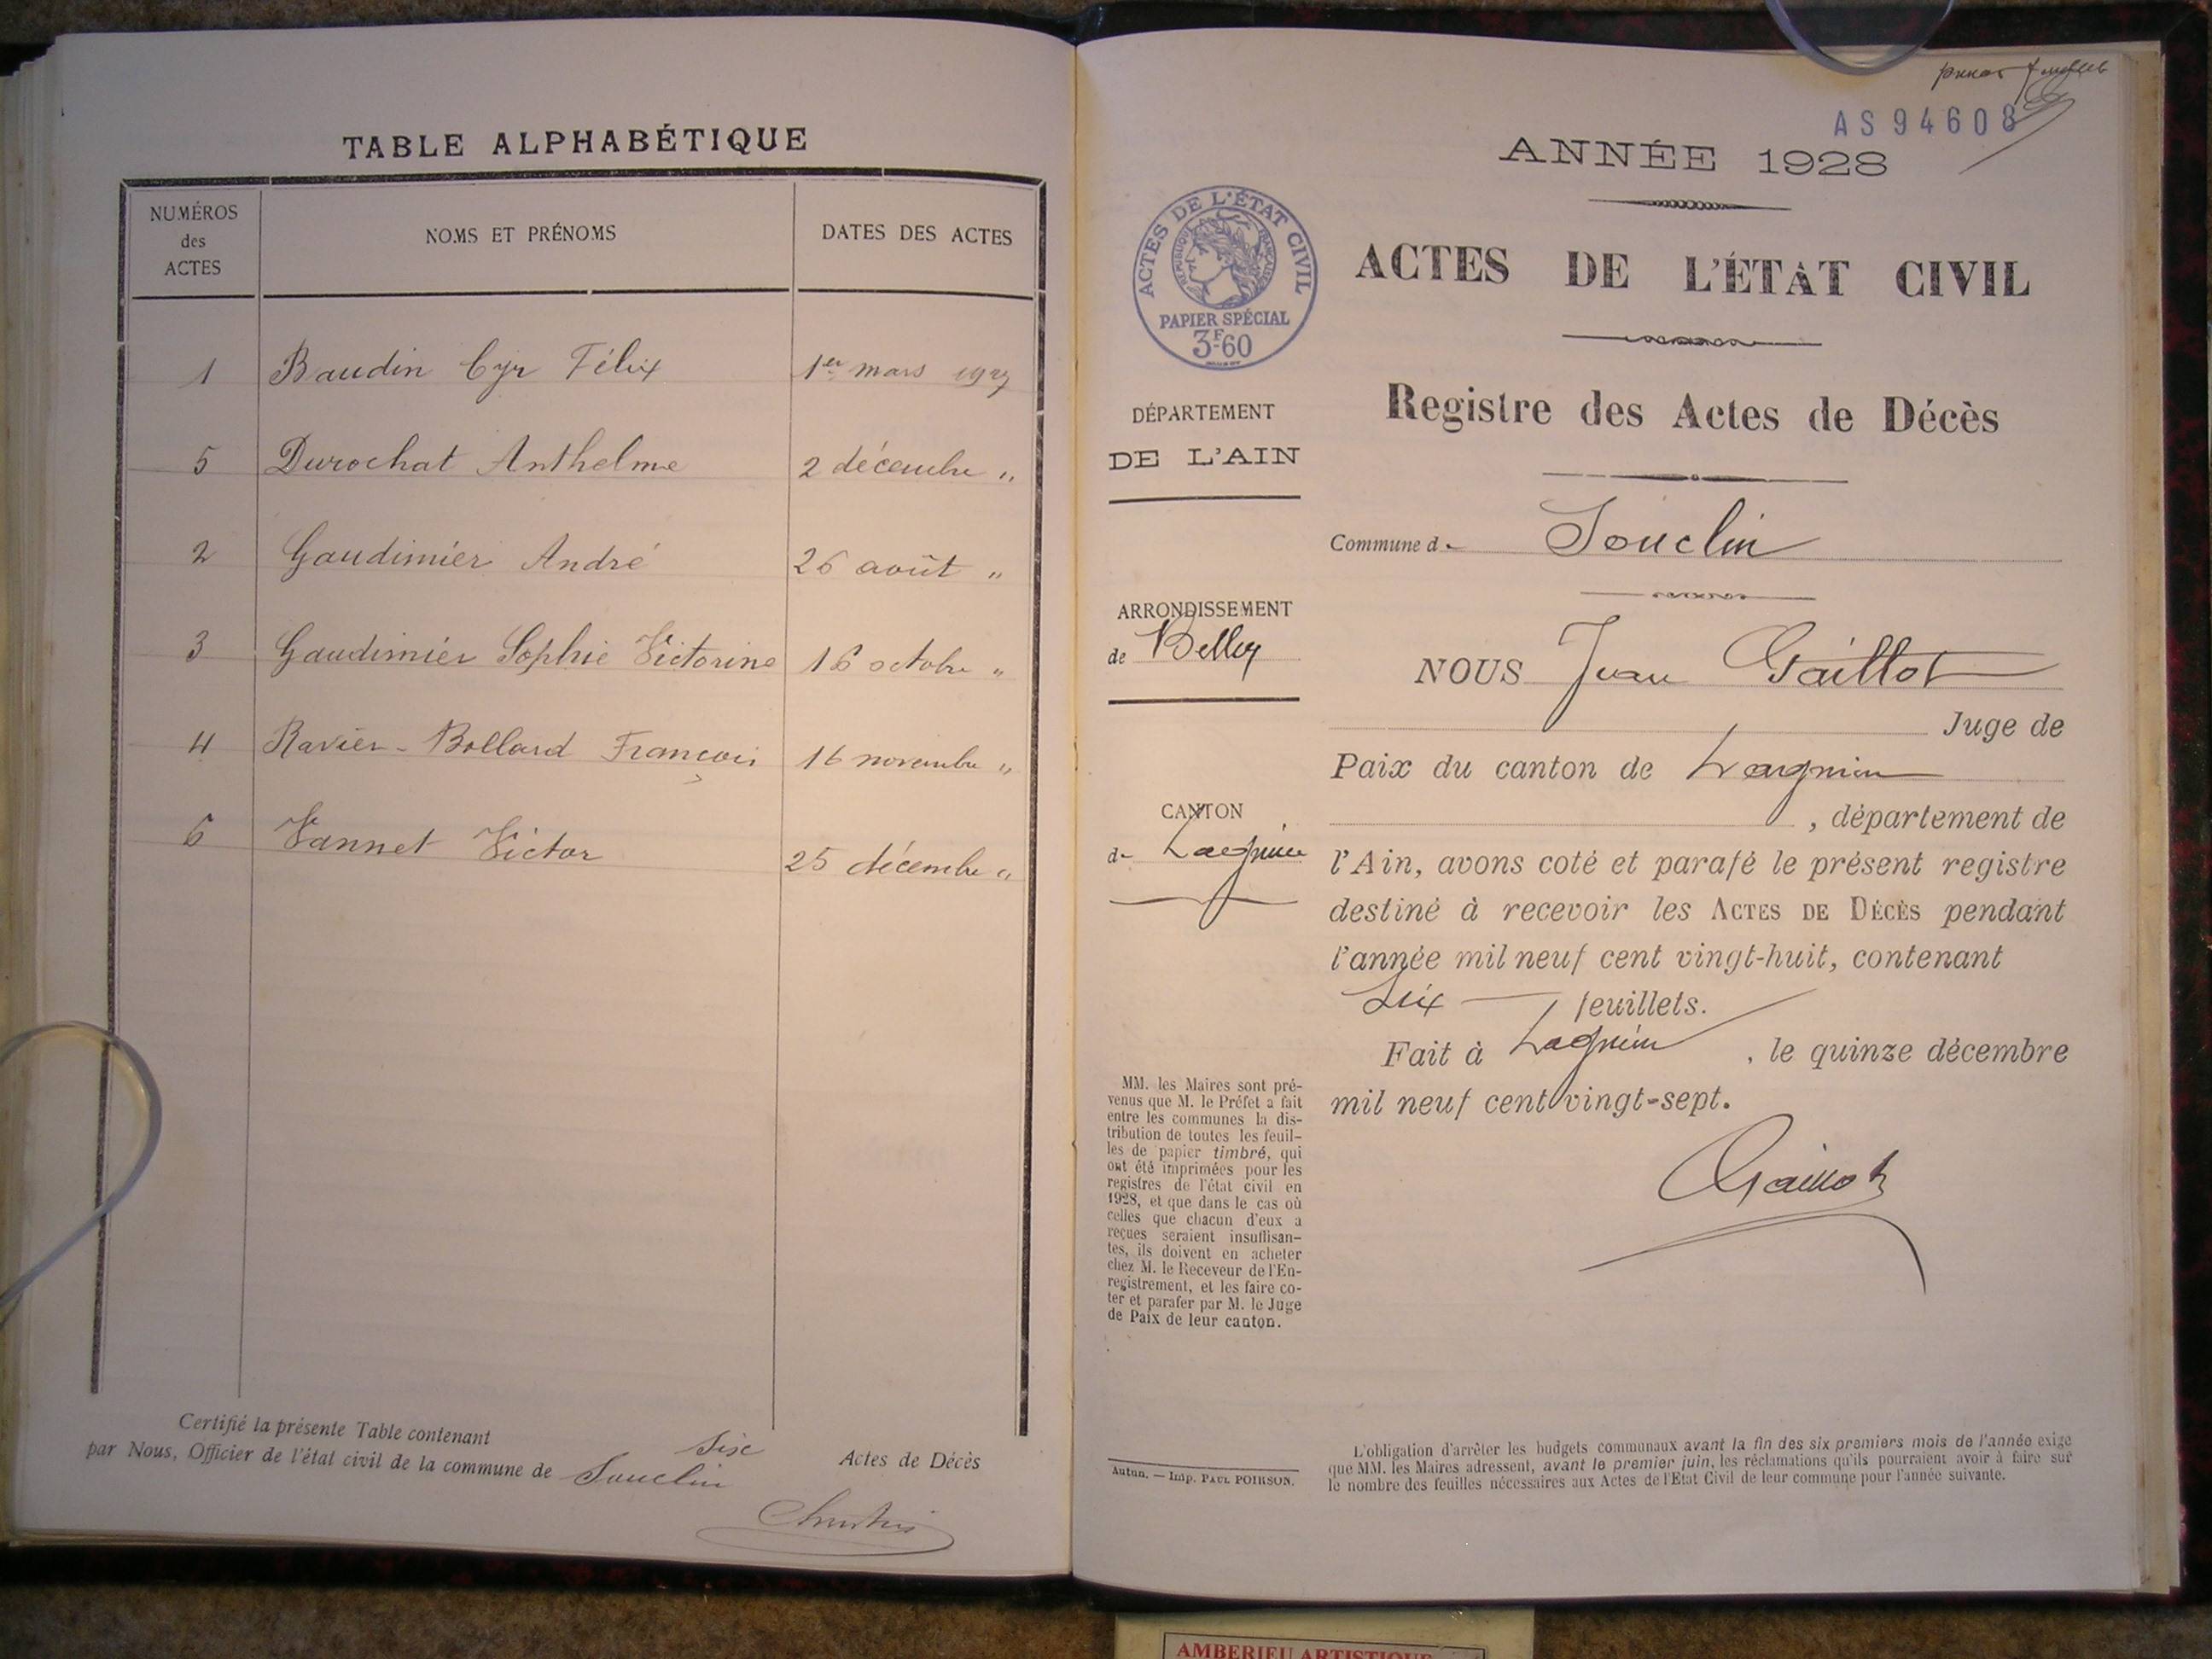 TABLE ALPHABÉTIQUE
NUMÉROS
des
ACTES
NOMS ET PRÉNOMS
DATES DES ACTES
1 Baudin Cyr Félix 1er mars 1927
5 Durochat Anthelme 2 décembre "
2 Gaudimier André 26 août "
3 Gaudimier Sophie Victorine 16 octobre "
4 Ravier-Bollard François 16 novembre "
6 Vannet Victor 25 décembre "
Certifié la présente Table contenant Six Actes de Décès
par Nous, Officier de l'état civil de la commune de Souclin
AS 94608
ANNÉE 1928
ACTES DE L'ÉTAT CIVIL
RÉPUBLIQUE FRANÇAISE
PAPIER SPÉCIAL
3F60
ACTES DE L'ÉTAT CIVIL
Registre des Actes de Décès
DÉPARTEMENT
DE L'AIN
ARRONDISSEMENT
de Belley
CANTON
de Lagnieu
MM. les Maires sont pré-
venus que M. le Préfet a fait
entre les communes la dis-
tribution de toutes les feuil-
les de papier timbré, qui
ont été imprimées pour les
registres de l'état civil en
1928, et que dans le cas où
celles que chacun d'eux a
reçues seraient insuffisan-
tes, ils doivent en acheter
chez M. le Receveur de l'En-
registrement, et les faire co-
ter et parafer par M. le Juge
de Paix de leur canton.
Autun. — Imp. PAUL POIRSON.
Commune de Souclin
NOUS Jean Gaillot
Juge de
Paix du canton de Lagnieu
, département de
l'Ain, avons coté et parafé le présent registre
destiné à recevoir les ACTES DE DÉCÈS pendant
l'année mil neuf cent vingt-huit, contenant
Six feuillets.
Fait à Lagnieu, le quinze décembre
mil neuf cent vingt-sept.
Gaillot
L'obligation d'arrêter les budgets communaux avant la fin des six premiers mois de l'année exige
que MM. les Maires adressent, avant le premier juin, les réclamations qu'ils pourraient avoir à faire sur
le nombre des feuilles nécessaires aux Actes de l'Etat Civil de leur commune pour l'année suivante.
AMBERIEU ARTISTIQUE